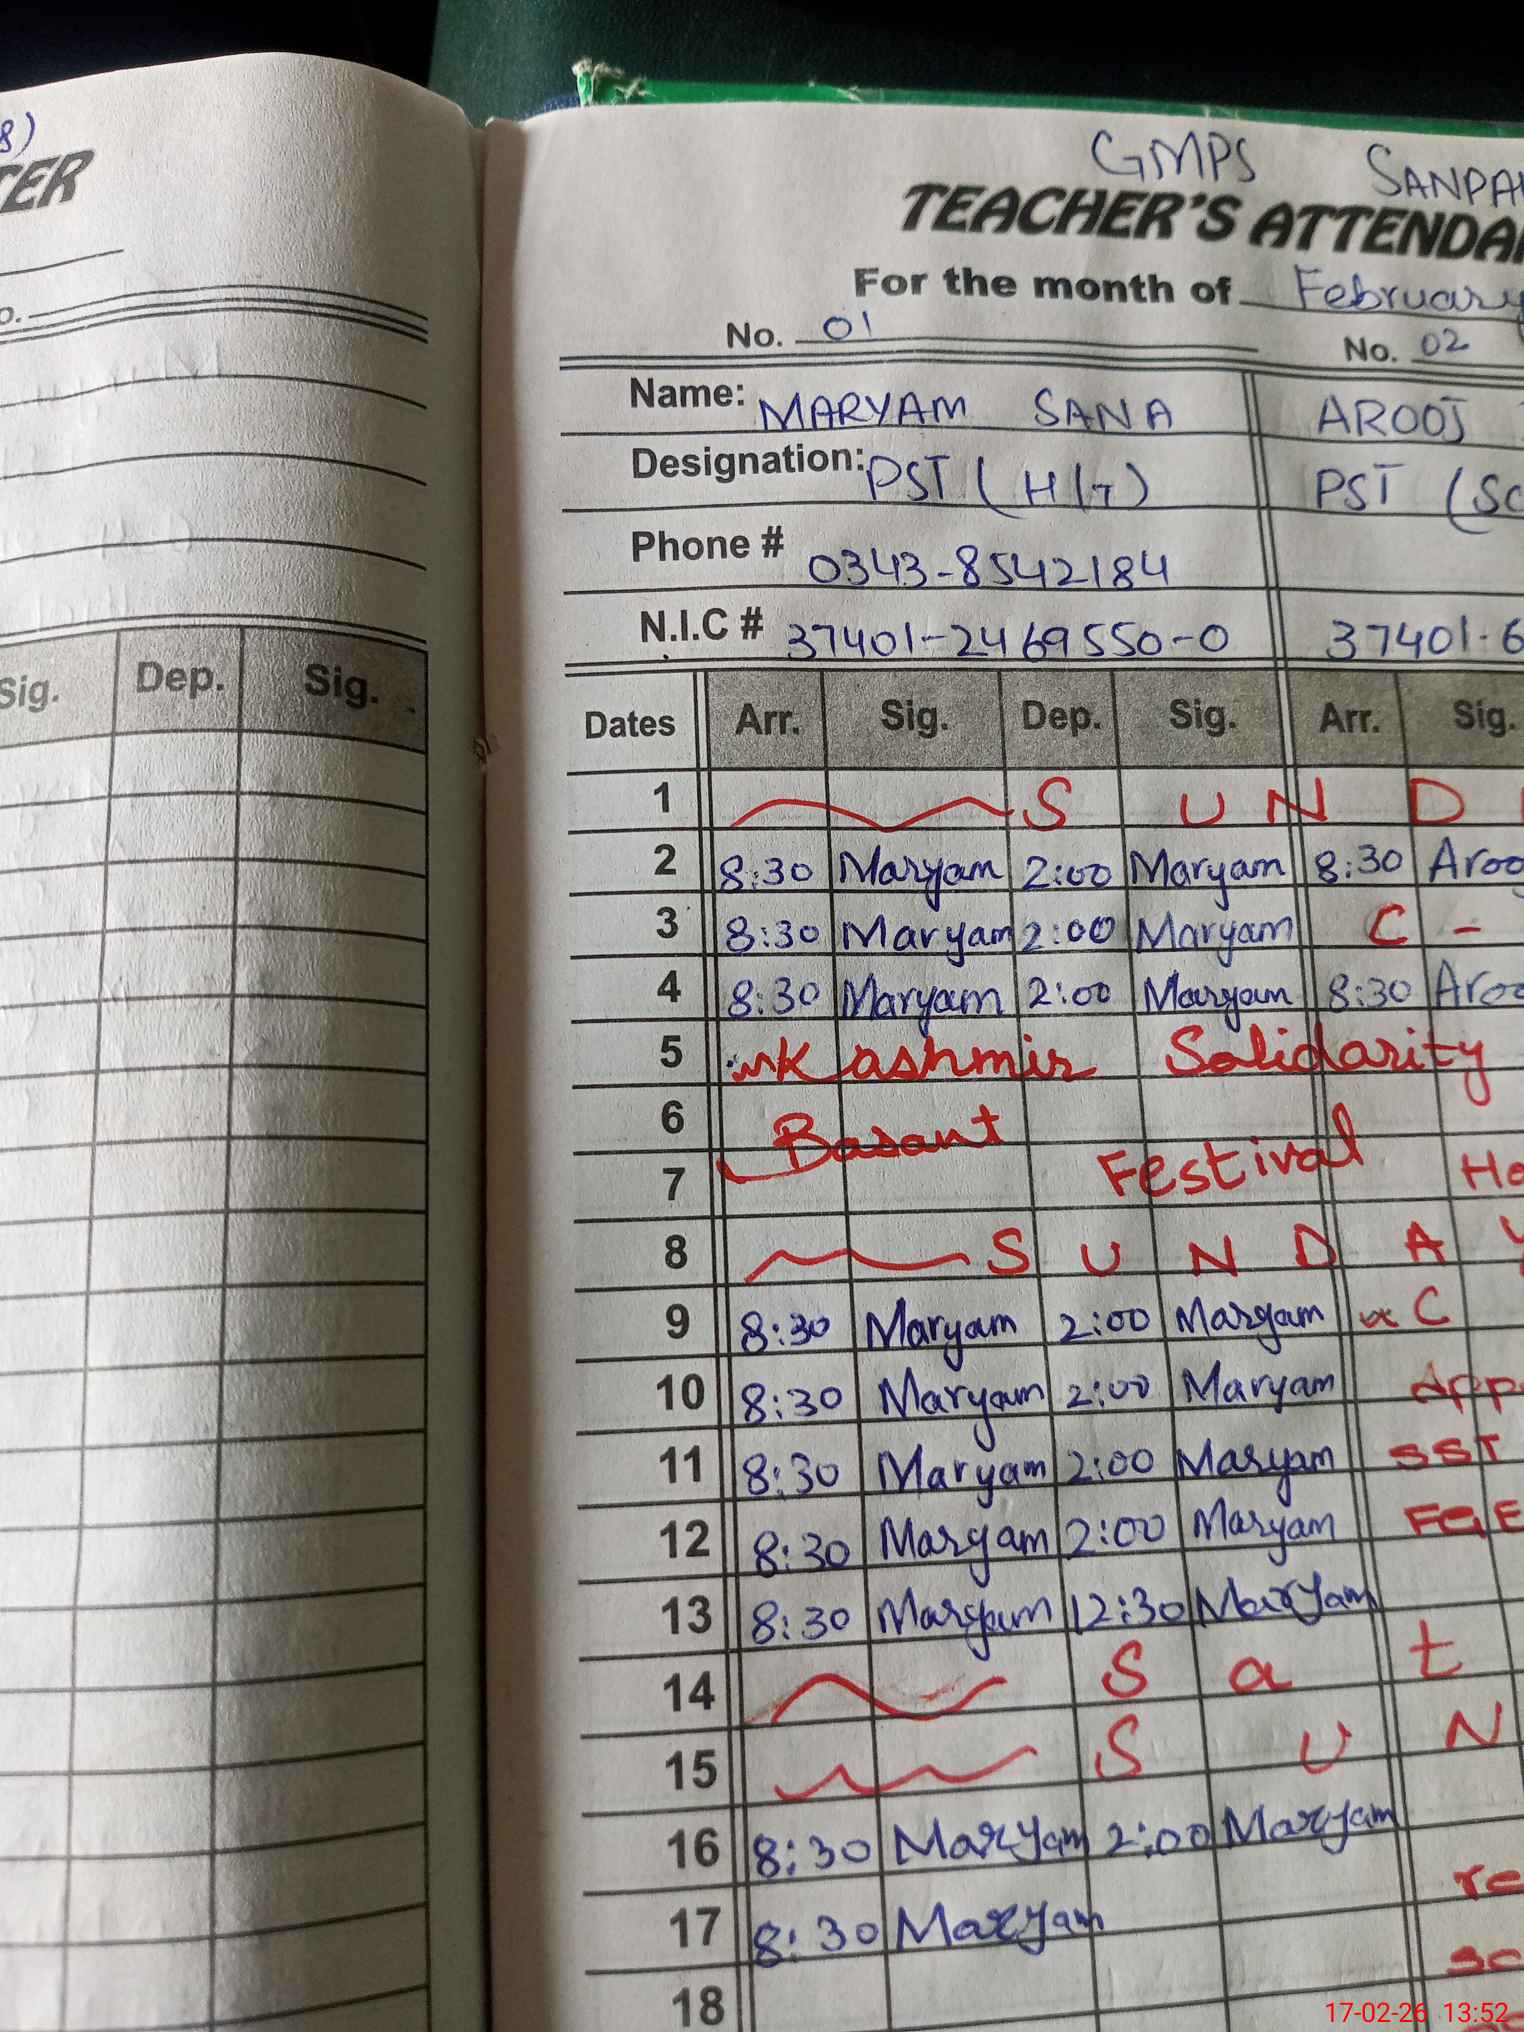 8)
TER
o.
Sig. Dep. Sig.
GMPS SANPA
TEACHER'S ATTENDA
For the month of February
No. 01 No. 02
Name: MARYAM SANA AROOJ
Designation: PST (H/T) PST (SC
Phone # 0343-8542184
N.I.C # 37401-2469550-0 37401-6
Dates Arr. Sig. Dep. Sig. Arr. Sig.
1 S U N D
2 8:30 Maryam 2:00 Maryam 8:30 Aroo
3 8:30 Maryam 2:00 Maryam C -
4 8:30 Maryam 2:00 Maryam 8:30 Aroo
5 Kashmir Solidarity
6 Basant
7 Festival Ho
8 S U N D A Y
9 8:30 Maryam 2:00 Maryam C
10 8:30 Maryam 2:00 Maryam App
11 8:30 Maryam 2:00 Maryam SST
12 8:30 Maryam 2:00 Maryam FGE
13 8:30 Maryam 12:30 Maryam
14 S a t
15 S U N
16 8:30 Maryam 2:00 Maryam
re
17 8:30 Maryam
sc
18
17-02-26 13:52